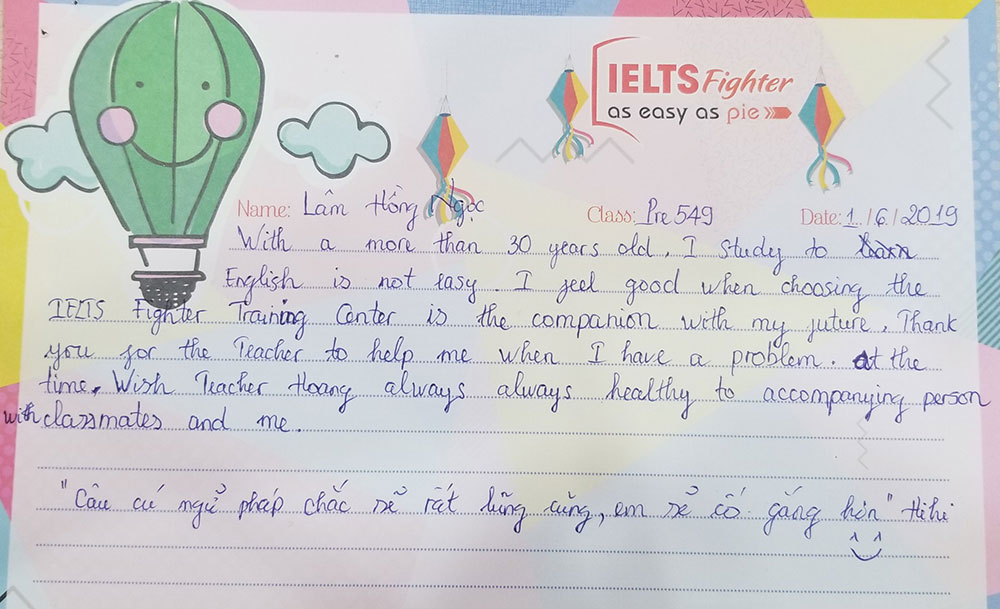 IELTS Fighter
as easy as pie
Name: Lâm Hồng Ngọc Class: Pre 549 Date: 1/6/2019
With a more than 30 years old, I study to learn
English is not easy. I feel good when choosing the
IELTS Fighter Training Center is the companion with my juture. Thank
you for the Teacher to help me when I have a problem. at the
time. Wish Teacher Hoang always always healthy to accompanying person
with classmates and me.
"Câu cú ngữ pháp chắc sẽ rất lũng cũng, em sẽ cố gắng hơn" Hihi
^ ^